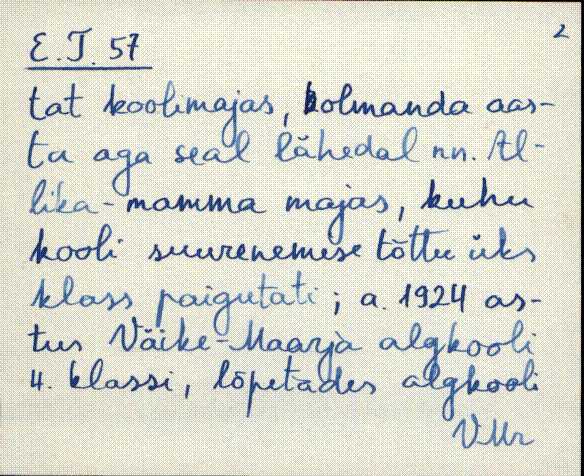 2
E. T. 57
tat koolimajas, kolmanda aas-
ta aga seal lähedal nn. Al-
lika-mamma majas, kuhu
kooli suurenemise tõttu üks
klass paigutati; a. 1924 as-
tus Väike-Maarja algkooli
4. klassi, lõpetades algkooli